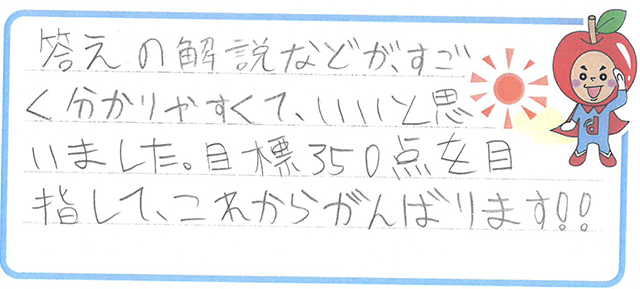 答えの解説などが、すご
く分かりやすくて、いいと思
いました。目標350点を目
指して、これからがんばります!!
d